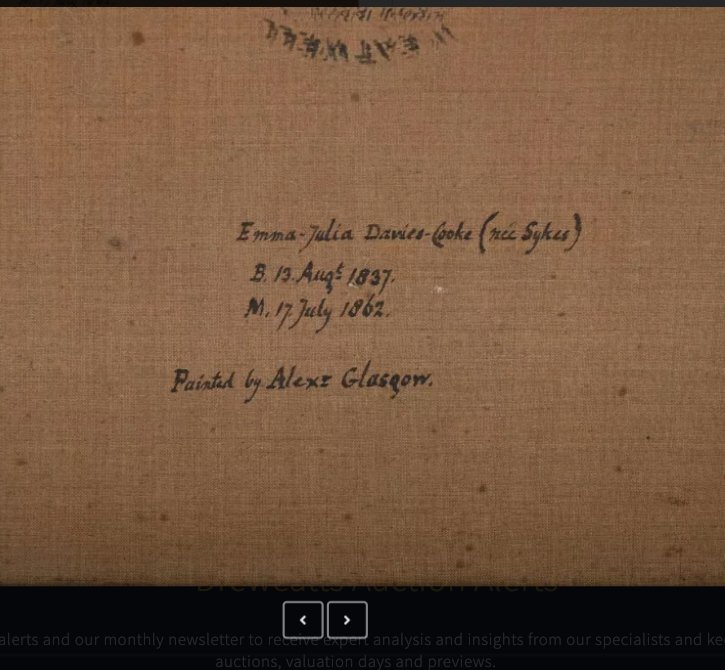 Emma-Julia Davies-Cooke (née Sykes)
B. 13. Augt 1837.
M. 17 July 1862.
Painted by Alexr Glasgow.
Dreweatts Auction Alerts
alerts and our monthly newsletter to receive expert analysis and insights from our specialists and ke
auctions, valuation days and previews.